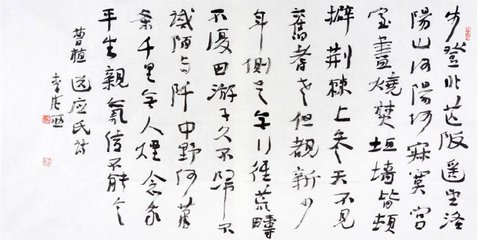 步登北芒阪遥望洛
陽山洛陽何寂寞宮
室盡燒焚垣墻皆頓
擗荊棘上参天不見
舊耆老但覩新少
年側足無行徑荒疇
不復田游子久不歸不
識陌与阡中野何蕭
條千里無人煙念我
平生親氣結不能言
曹植 送應氏詩